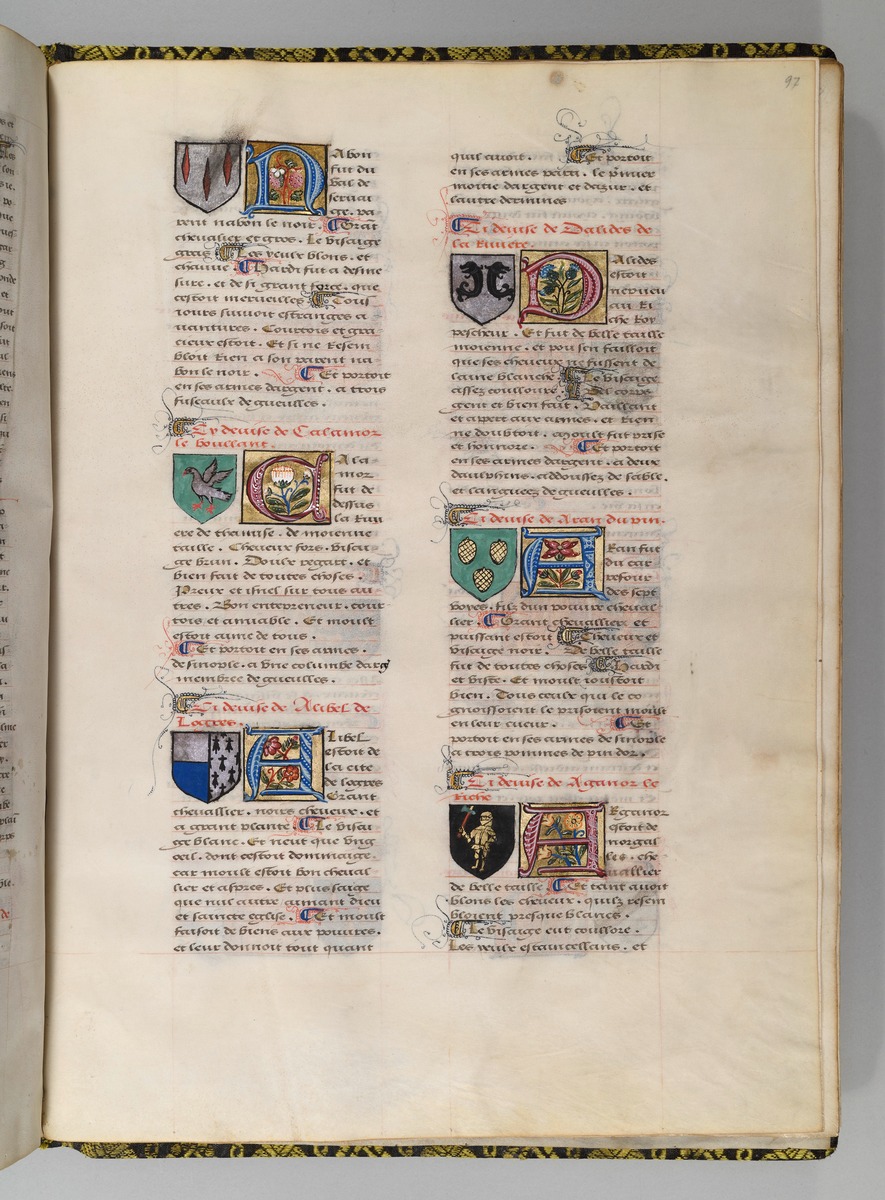 97
Nabon
fut du
val de
servai
ge. pa
rent nabon le noir. Grāt
chevalier et gros. Le visaige
gras Les yeulx blons. et
chauve Hardi fut a desme
sure. et de si grant force. que
cestoit merveilles Tous
iours suivoit estranges a
vantures. Courtois et gra
cieux estoit. Et si ne resem
bloit rien a son parent na
bon le noir. Et portoit
en ses armes dargent. a trois
fuseaulx de gueulles.
Cy devise de Calamor
le voullant.
Cala
mor
fut de
dessus
la rivi
ere de thamise. de moienne
taille. Cheveux fors. visai
ge brun. Doulx regart. et
bien fait de toutes choses.
Preux et isnel sur tous au
tres. Bon entrepreneur. cour
tois et amiable. Et moult
estoit aime de tous.
Et portoit en ses armes.
de sinople. a une columbe darg
membree de gueulles.
Ci devise de Alibel de
Logres.
Alibel
estoit de
la cite
de logres
Grant
chevallier. noirs cheveux. et
a grant plante Le visai
ge blanc. Et neut que ung
oeil. dont cestoit dommaige.
car moult estoit bon cheval
lier et aspres. Et plus saige
que nul autre aimant dieu
et saincte eglise. Et moult
faisoit de biens aux povures.
et leur donnoit tout quant
quil avoit. Et portoit
en ses armes parti. le p̄mier
moitie dargent et dazur. et
lautre dermines
Ci devise de Dalides de
la Riviere.
Dalides
estoit
nepveu
au Ri
che Roy
pescheur. Et fut de belle taille
moienne. et pou sen failloit
que ses cheveux ne fussent de
laine blanche Le visaige
assez coulloure Bel corps
gent et bien fait. Vaillant
et appert aux armes. et Rien
ne doubtoit. Moult fut prise
et honnore. Et portoit
en ses armes dargent. a deux
daulphins. addossez de sable.
et languez de gueulles.
Ci devise de Aran du pin.
Aran fut
du car
refour
des sept
voyes. filz dun povure cheval
lier. Grant chevallier et
puissant estoit Cheveux et
visaige noir. De belle taille
fut de toutes choses Hardi
et viste. Et moult ioustoit
bien. Tous ceulx qui le co
gnoissoient le prisoient moult
en leur cueur. Et
portoit en ses armes de sinople
a trois pommes de pin dor.
Ci devise de Aganor le
riche
Aganor
estoit de
norgal
les. che
vallier
de belle taille. Et tant avoit
blons les cheveux. quilz resem
bloient presque blancs.
Le visaige eut coullore.
Les yeulx estancellans. et